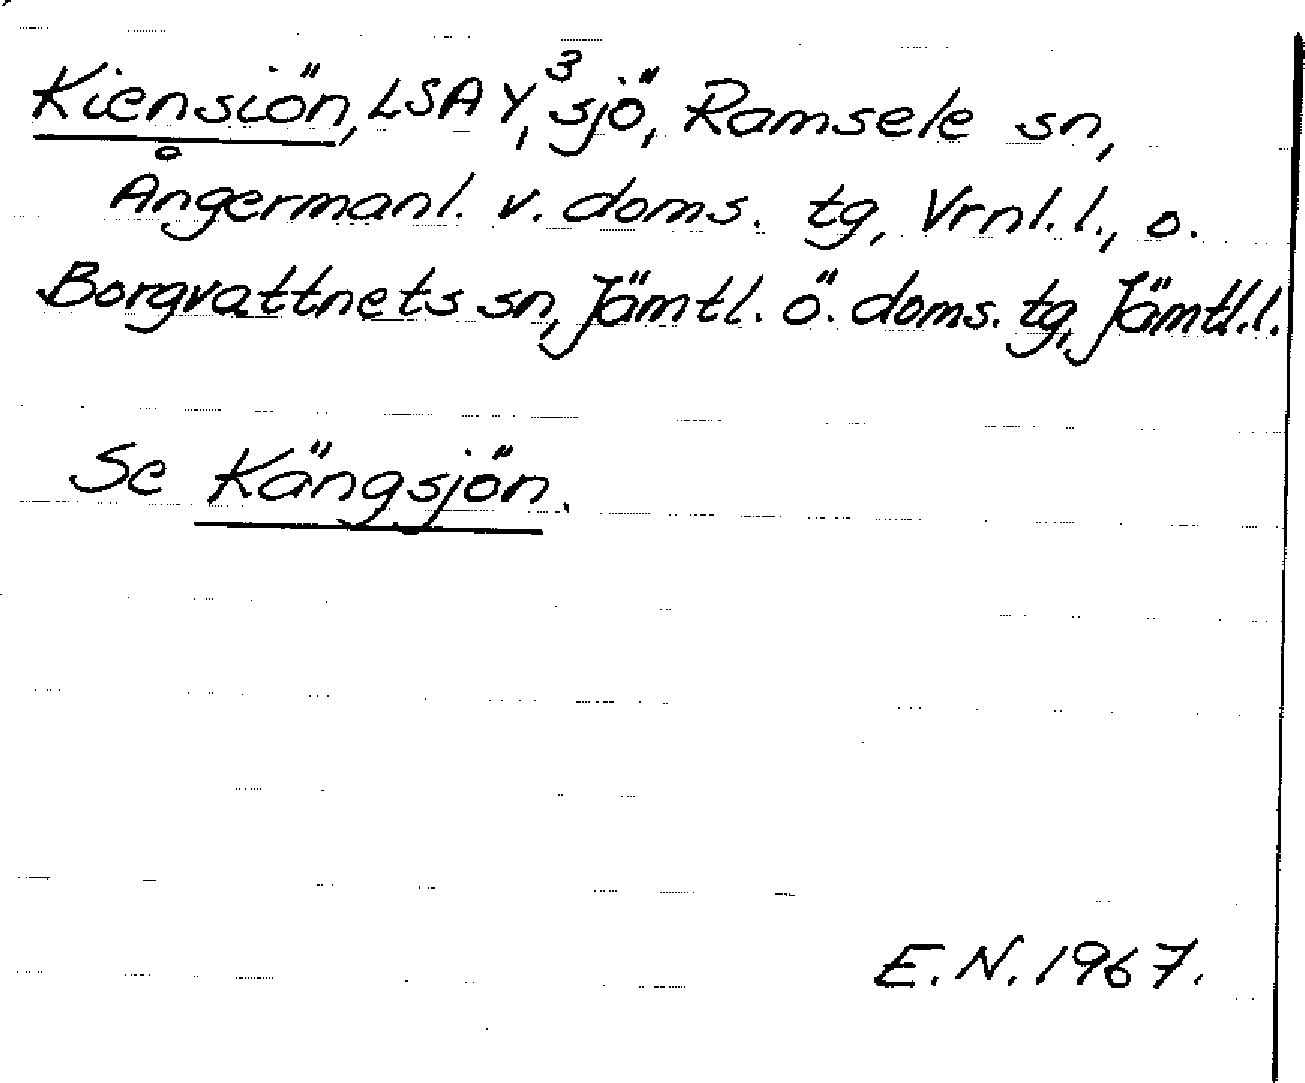 Kiensiön, LSA Y³, sjö, Ramsele sn,
Ångermanl. v. doms. tg, Vrnl. l., o.
Borgvattnets sn, Jämtl. ö. doms. tg, Jämtl. l.
Se Kängsjön.
E. N. 1967.